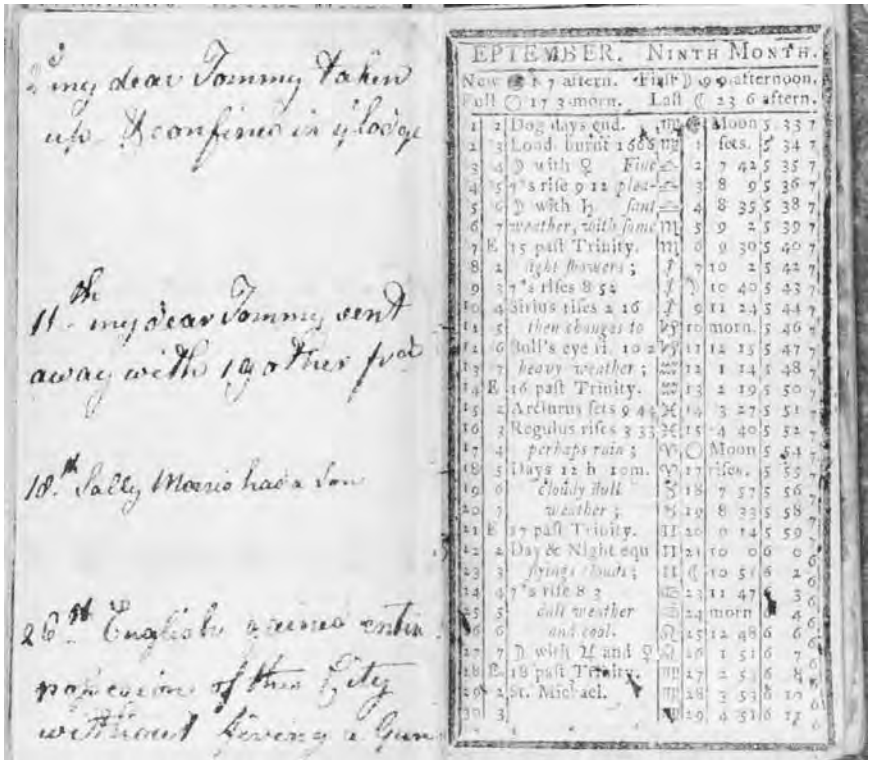 2d my dear Tommy taken
up & confined in ye lodge
11th my dear Tommy sent
away with 19 others from
18th Sally Morris had a Son
26th English gained entire
possession of this City
without fireing a Gun
EPTEMBER. NINTH MONTH.
New 1 7 aftern. First ☽ 9 9 afternoon.
Full ○ 17 3 morn. Last ☾ 23 6 aftern.
1 2 Dog days end. ♍ Moon 5 33 7
2 3 Lond. burnt 1666 ♍ 1 sets. 5 34 7
3 4 ☽ with ♀ Fine ♎ 2 7 42 5 35 7
4 5 7*s rise 9 12 plea- ♎ 3 8 9 5 36 7
5 6 ☽ with ♄ sant ♎ 4 8 35 5 38 7
6 7 weather, with some ♏ 5 9 2 5 39 7
7 E 15 past Trinity. ♏ 6 9 30 5 40 7
8 2 light showers; ♐ 7 10 2 5 42 7
9 3 7*s rises 8 52 ♐ ☽ 10 40 5 43 7
10 4 Sirius rises 2 16 ♐ 9 11 24 5 44 7
11 5 then changes to ♑ 10 morn. 5 46 7
12 6 Bull's eye ri. 10 2 ♑ 11 12 15 5 47 7
13 7 heavy weather; ♒ 12 1 14 5 48 7
14 E 16 past Trinity. ♒ 13 2 19 5 50 7
15 2 Arcturus sets 9 43 ♓ 14 3 27 5 51 7
16 3 Regulus rises 3 33 ♓ 15 4 40 5 52 7
17 4 perhaps rain; ♈ ○ Moon 5 54 7
18 5 Days 12 h 10m. ♈ 17 rises. 5 55 7
19 6 cloudy dull ♉ 18 7 57 5 56 7
20 7 weather; ♉ 19 8 33 5 58 7
21 E 17 past Trinity. ♊ 20 9 14 5 59
22 2 Day & Night equ ♊ 21 10 0 6 0 6
23 3 flying clouds; ♊ ☾ 10 51 6 2 6
24 4 7*s rise 8 3 ♋ 23 11 47 3 6
25 5 dull weather ♋ 24 morn 6 4 6
26 6 and cool. ♌ 25 12 48 6 6 6
27 7 ☽ with ♃ and ♀ ♌ 26 1 51 6 7 6
28 E 18 past Trinity. ♍ 27 2 53 6 8 6
29 2 St. Michael. ♍ 28 3 53 6 10 6
30 3 29 4 51 6 11 6